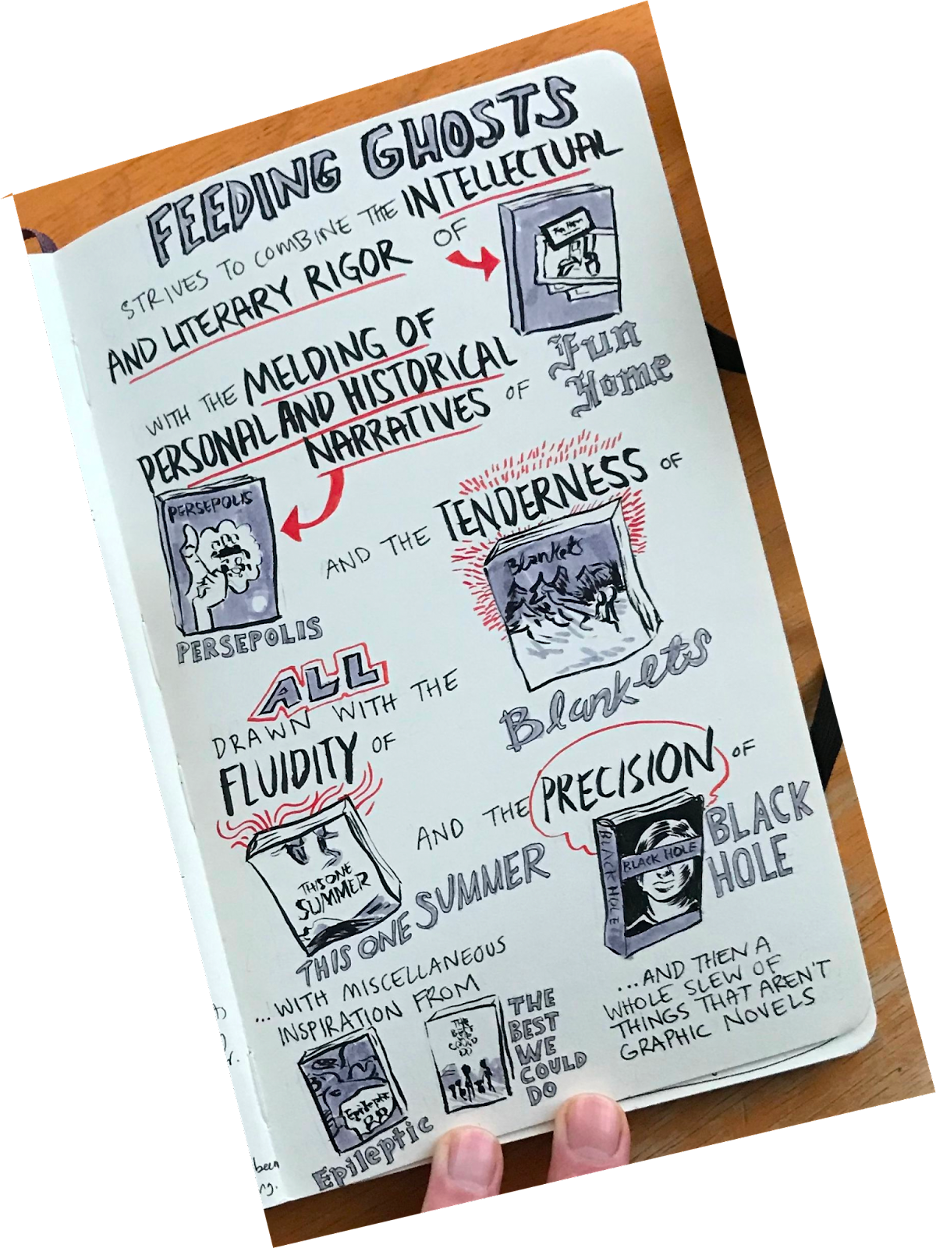 FEEDING GHOSTS
STRIVES TO COMBINE THE INTELLECTUAL
AND LITERARY RIGOR OF
Fun
Home
WITH THE MELDING OF
PERSONAL AND HISTORICAL
NARRATIVES OF
PERSEPOLIS
PERSEPOLIS
AND THE TENDERNESS OF
Blankets
Blankets
ALL
DRAWN WITH THE
FLUIDITY OF
THIS ONE
SUMMER
THIS ONE SUMMER
AND THE PRECISION OF
BLACK HOLE
BLACK HOLE
BLACK
HOLE
...WITH MISCELLANEOUS
INSPIRATION FROM
Epileptic
Epileptic
THE
BEST
WE
COULD
DO
...AND THEN A
WHOLE SLEW OF
THINGS THAT AREN'T
GRAPHIC NOVELS
been